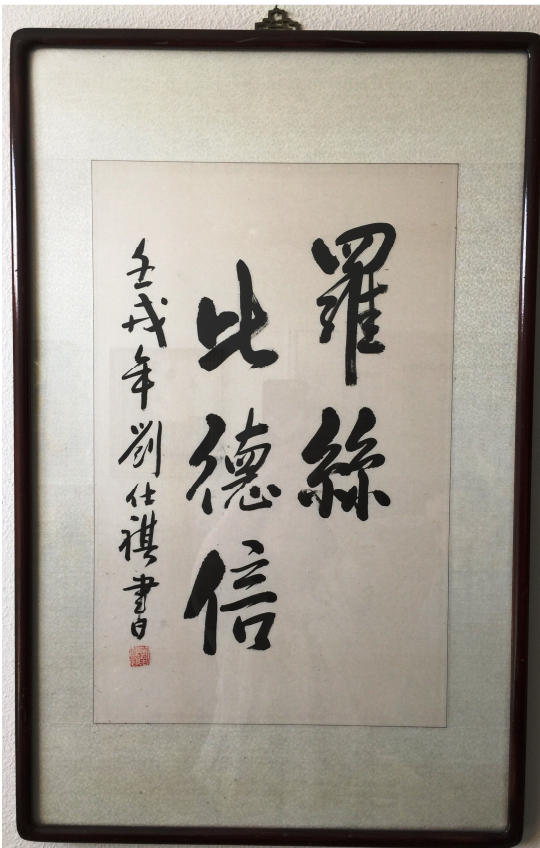 羅絲
比德信
壬戌年劉仕祺書